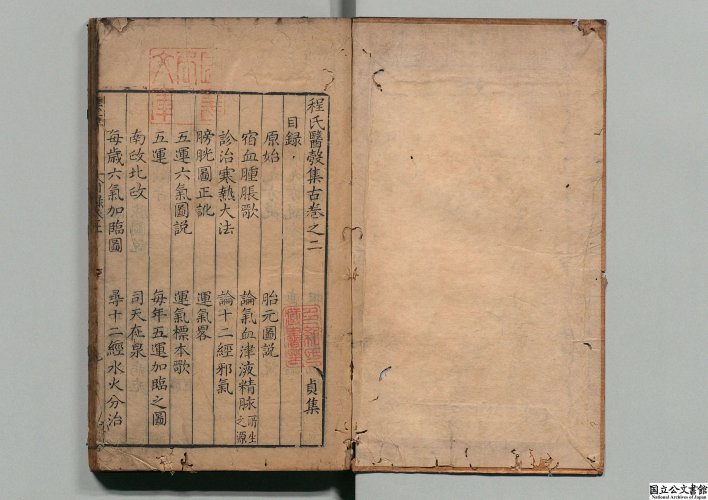 程氏醫彀集古卷之二
貞集
目録
原始
胎元圖説
宿血腫脹歌
論氣血津液精脉所生之源
診治寒熱大法
論十二經邪氣
膀胱圖正訛
運氣畧
五運六氣圖説
運氣標本歌
五運
每年五運加臨之圖
南政北政
司天在泉
每歲六氣加臨圖
尋十二經水火分治
国立公文書館
National Archives of Japan